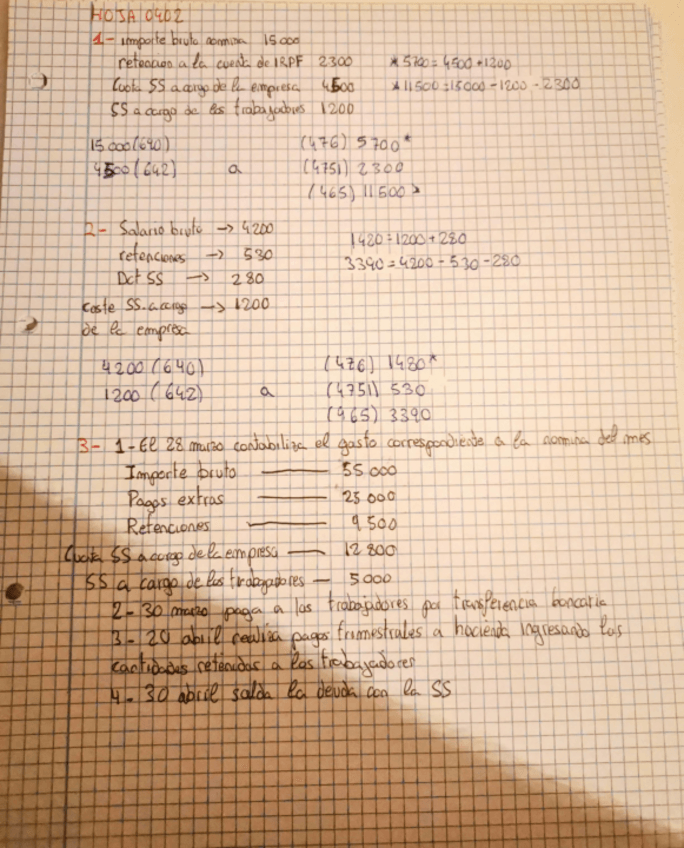 HOJA 0402
1- importe bruto nomina 15000
retencion a la cuenta de IRPF 2300 * 5700 = 4500 + 1200
Cuota SS a cargo de la empresa 4500 * 11500 = 15000 - 1200 - 2300
SS a cargo de los trabajadores 1200
15000 (640) (476) 5700*
4500 (642) a (4751) 2300
(465) 11500*
2- Salario bruto -> 4200
1420 = 1200 + 280
retenciones -> 530
3390 = 4200 - 530 - 280
Dct SS -> 280
coste SS. a cargo -> 1200
de la empresa
4200 (640) (476) 1480*
1200 (642) a (4751) 530
(465) 3390
3- 1- El 28 marzo contabiliza el gasto correspondiente a la nomina del mes
Importe bruto — 55000
Pagos extras — 25000
Retenciones — 9500
Cuota SS a cargo de la empresa — 12800
SS a cargo de los trabajadores — 5000
2- 30 marzo paga a los trabajadores por transferencia bancaria
3- 20 abril realiza pagos trimestrales a hacienda ingresando las
cantidades retenidas a los trabajadores
4- 30 abril salda la deuda con la SS